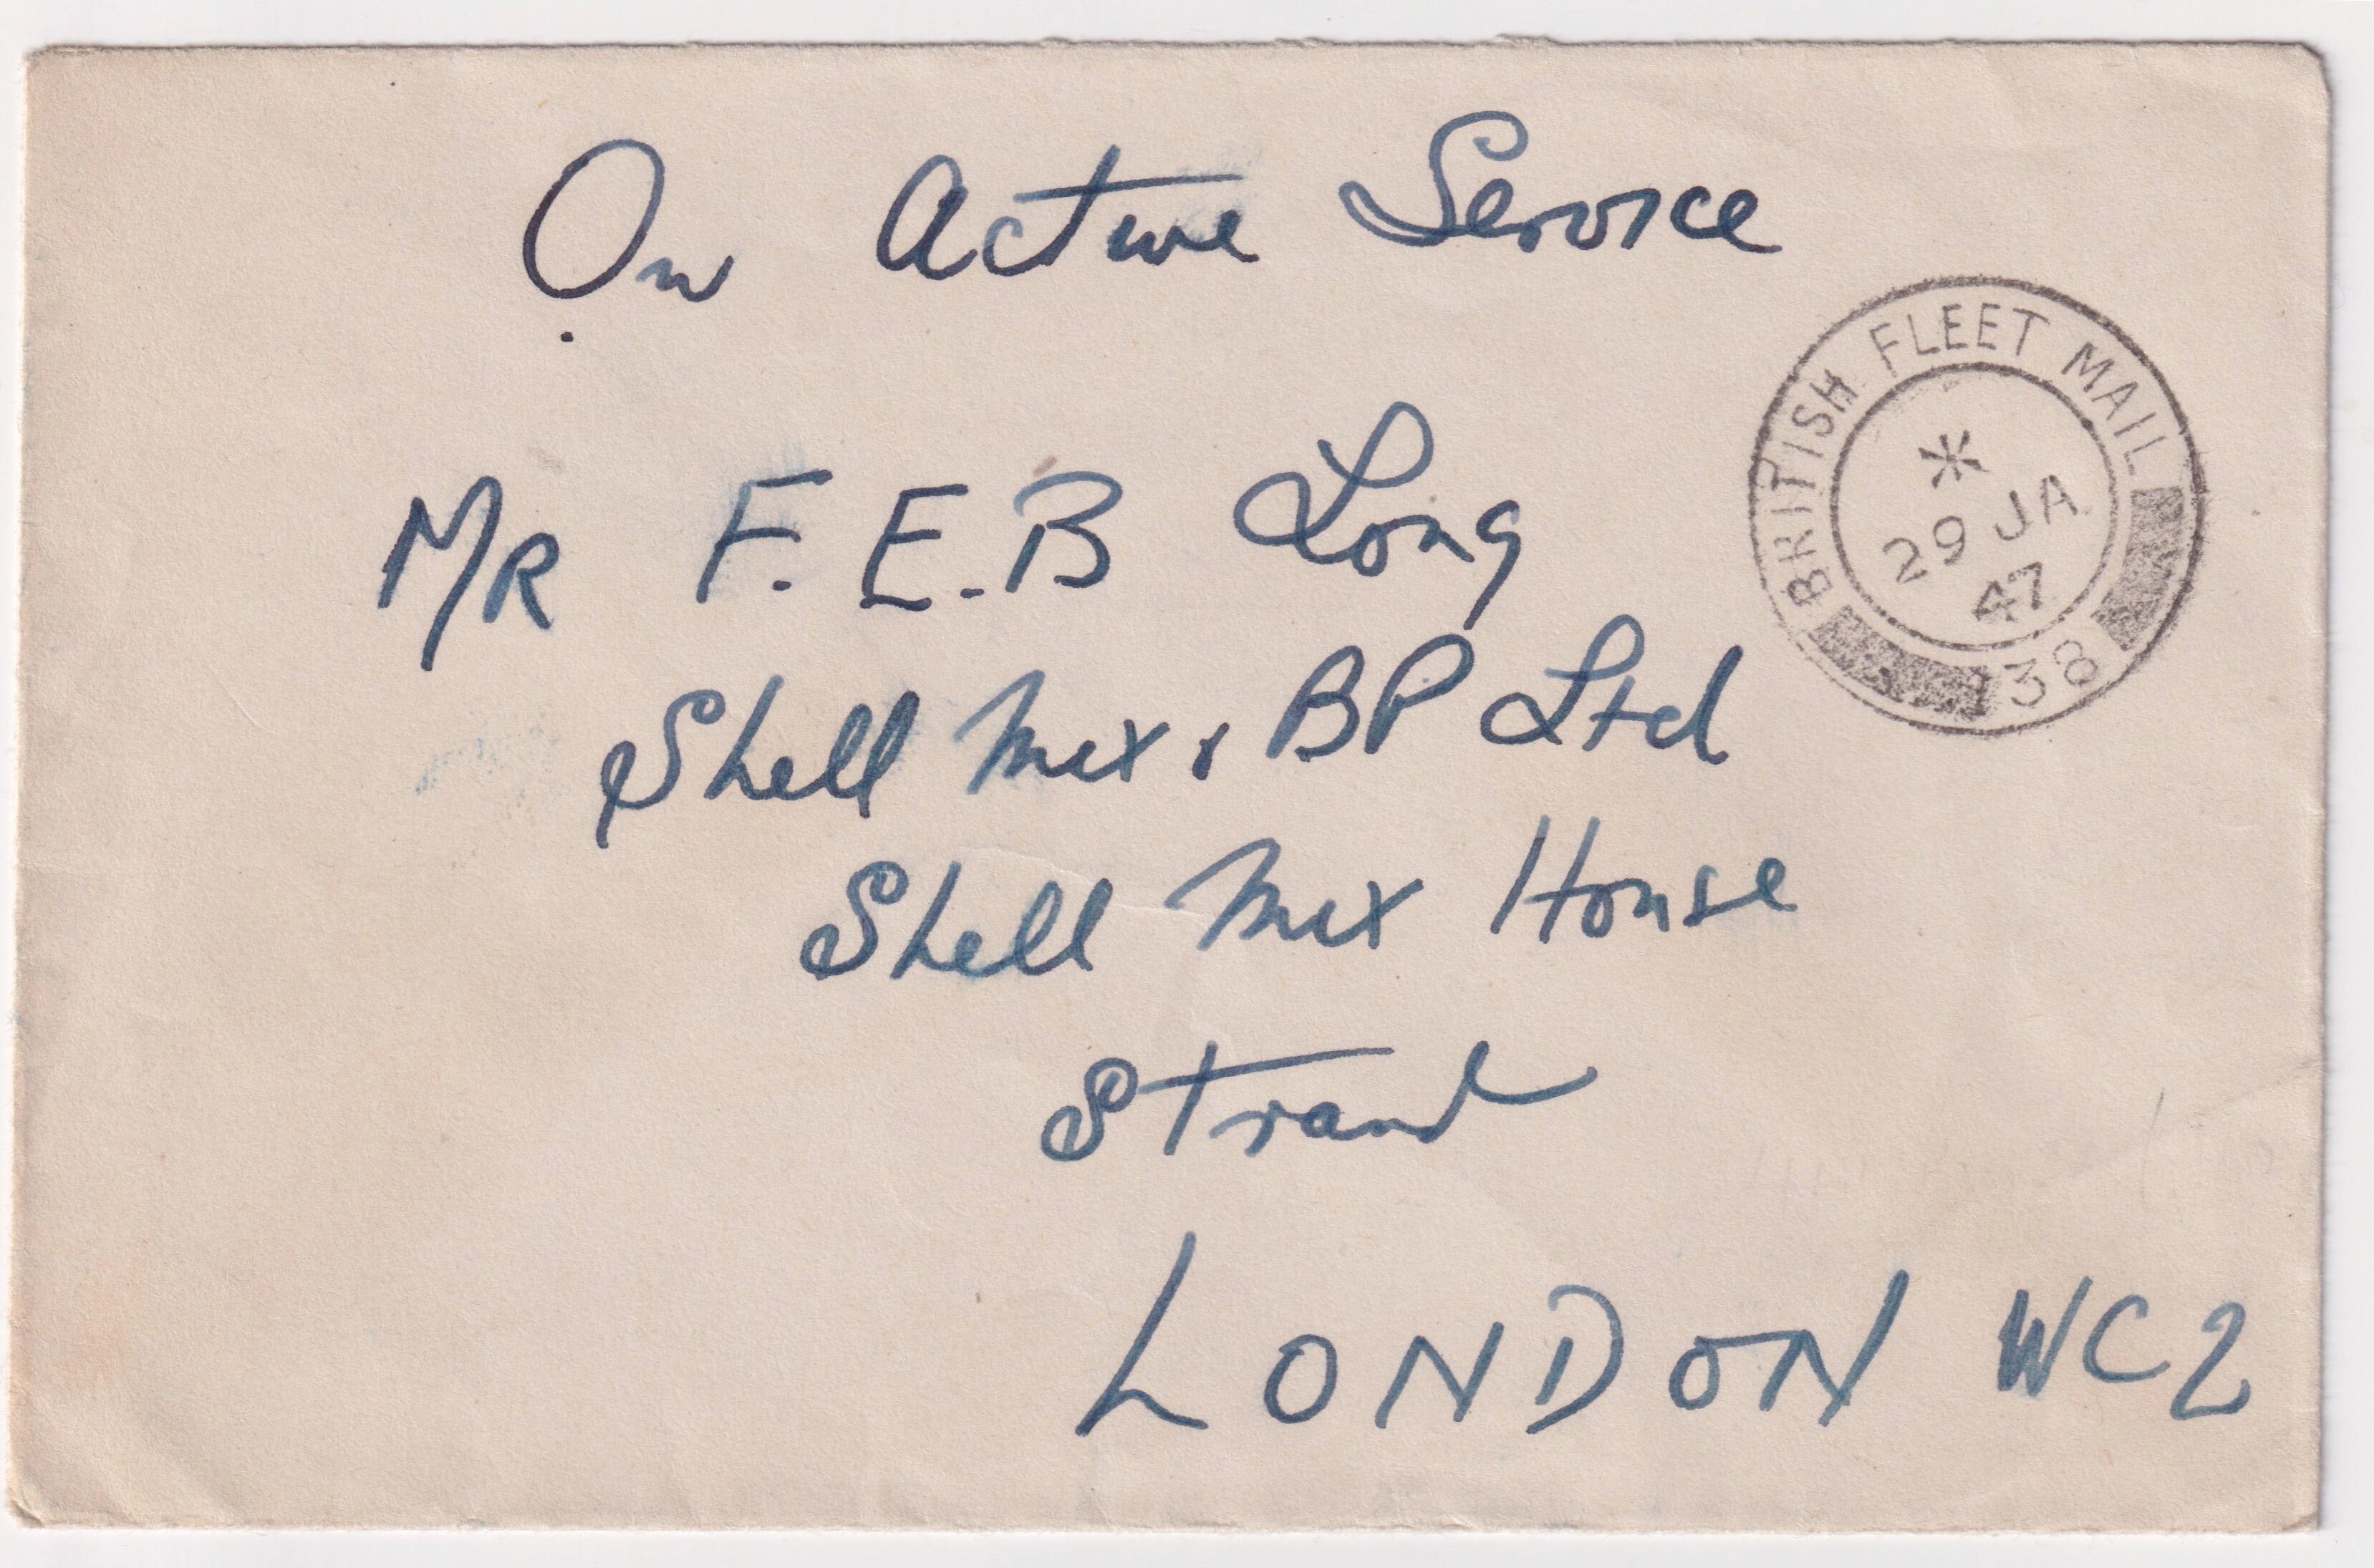 On Active Service
BRITISH FLEET MAIL
*
29 JA
47
138
MR F. E. B Long
Shell Mex & BP Ltd
Shell Mex House
Strand
LONDON WC2